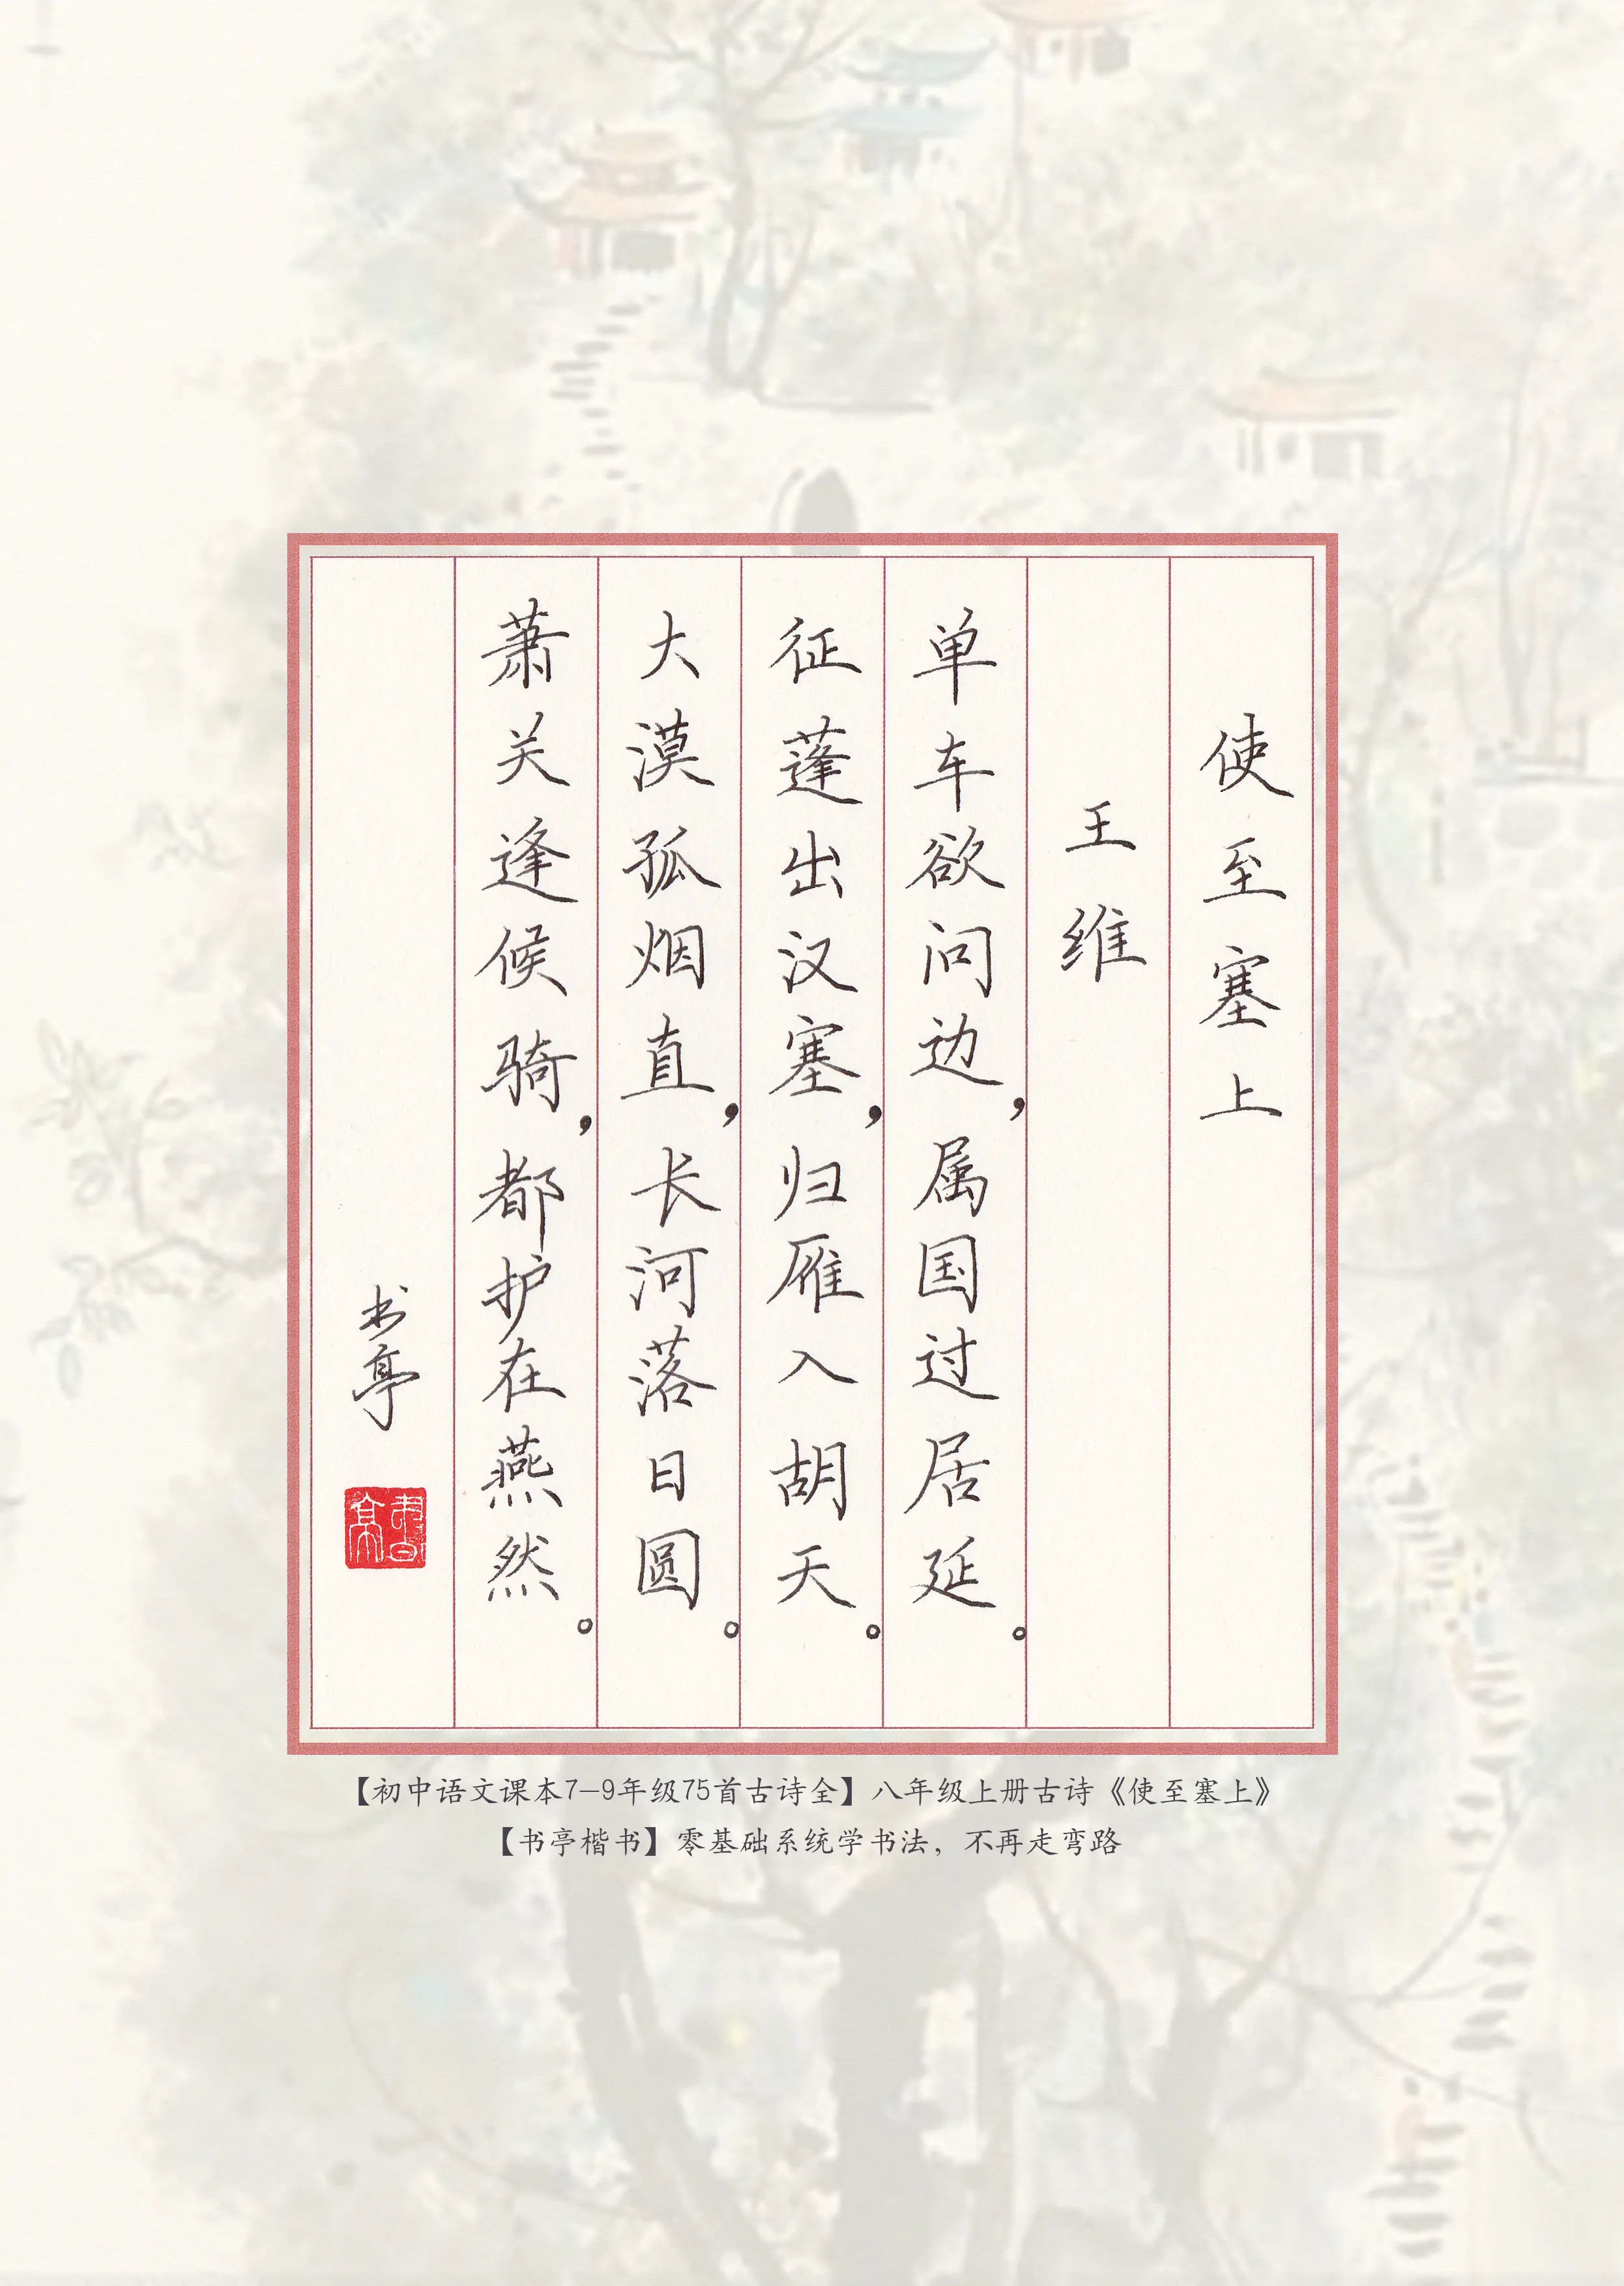 使至塞上
王维
单车欲问边，属国过居延。
征蓬出汉塞，归雁入胡天。
大漠孤烟直，长河落日圆。
萧关逢候骑，都护在燕然。
书亭
書亭
【初中语文课本7-9年级75首古诗全】八年级上册古诗《使至塞上》
【书亭楷书】零基础系统学书法，不再走弯路